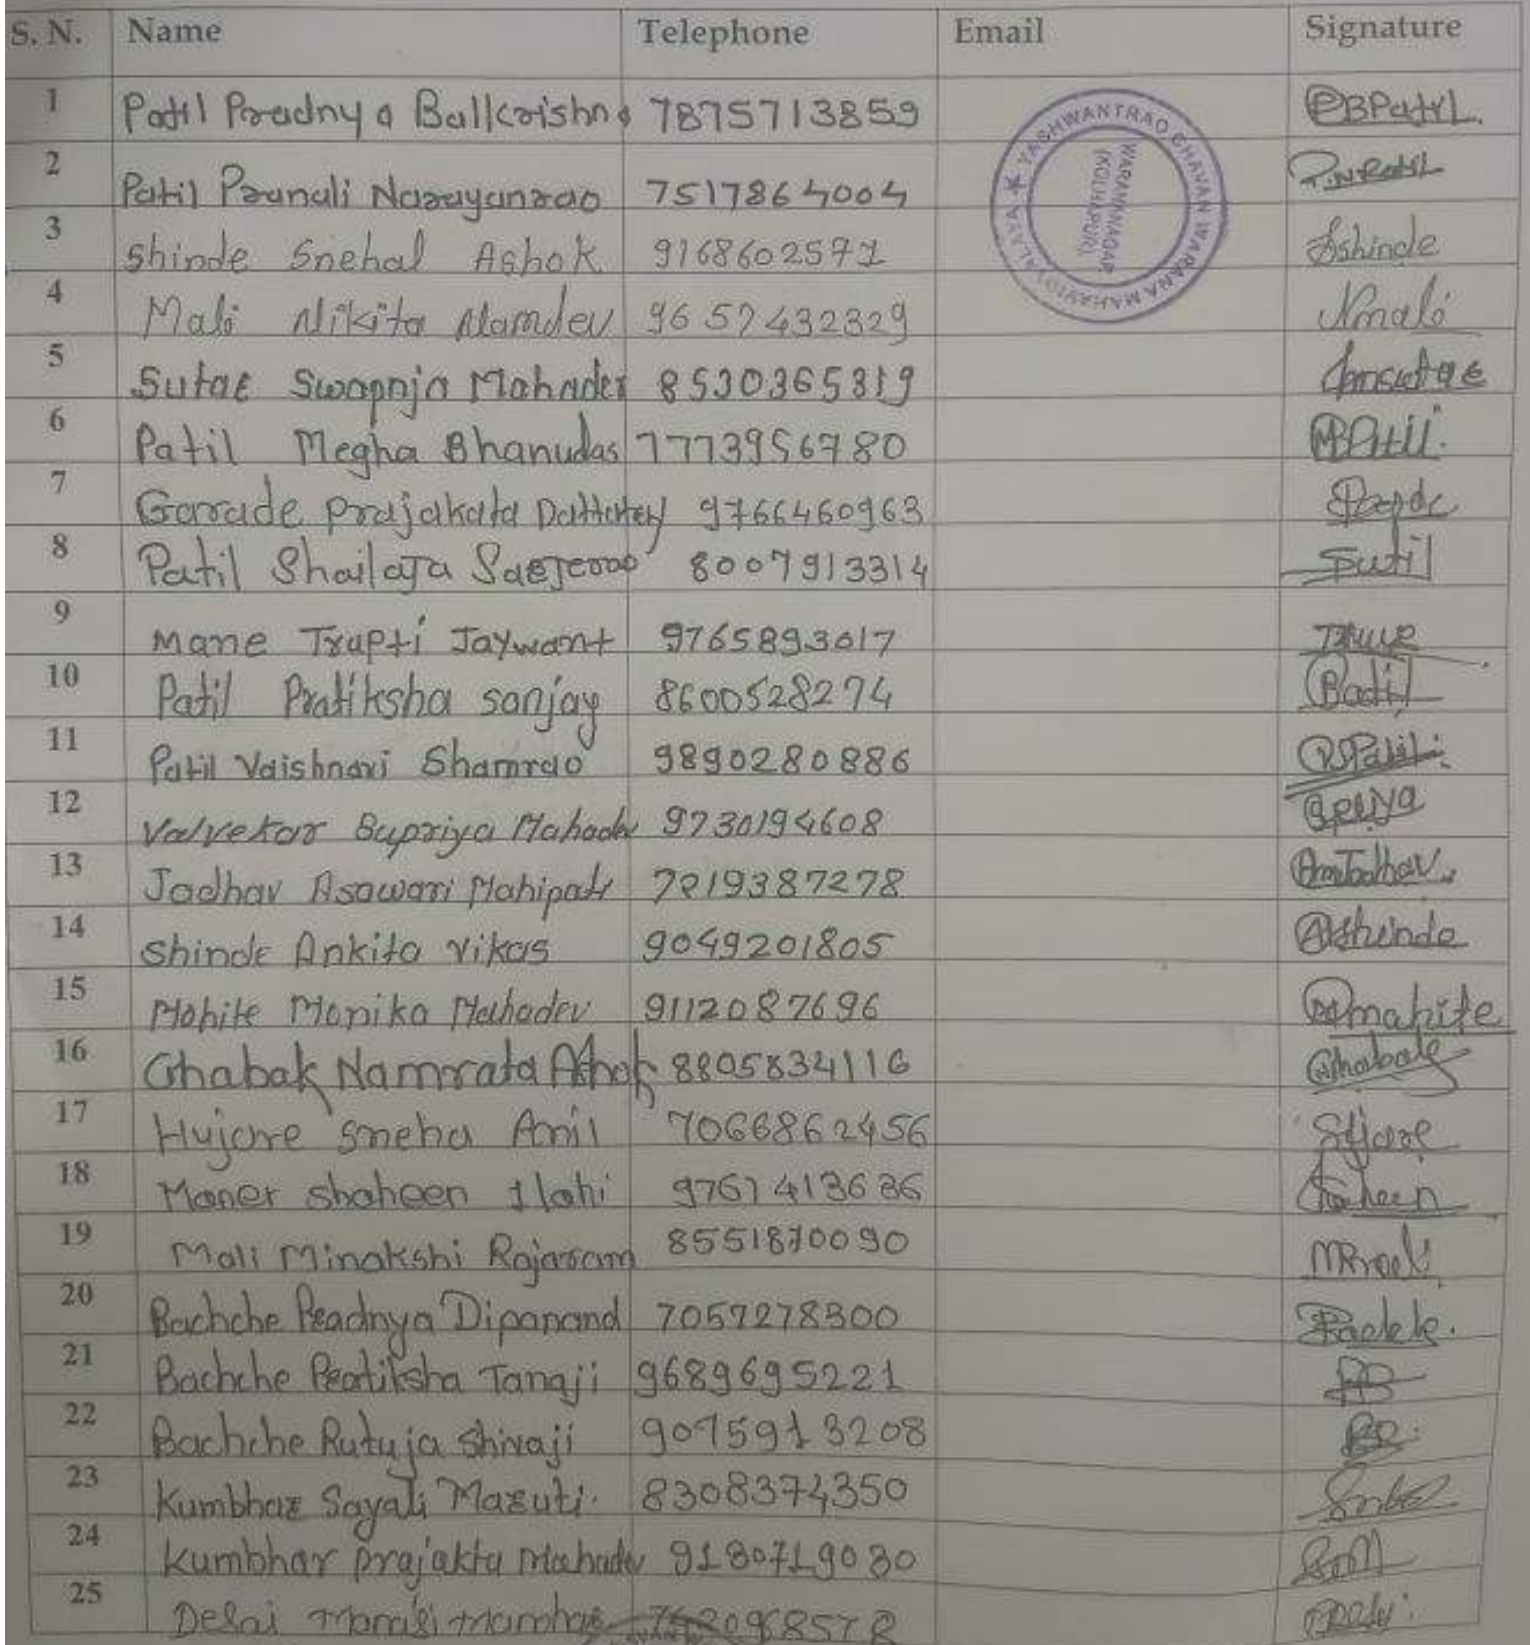 S. N. Name Telephone Email Signature
1 Patil Pradnya Ballkrishna 7875713859 PBPatil.
2 Patil Prunali Narayanrao 7517864004 P.N.Patil
3 Shinde Snehal Ashok 9168602571 SShinde
4 Mali Nikita Namdev 9657432329 Nmali
5 Sutar Swapnja Mahadev 8530365319
6 Patil Megha Bhanudas 7773956780 MPatil.
7 Garade Prajakata Dattatey 9766460963
8 Patil Shailaja Sarjerao 8007913314
9 Mane Trupti Jaywant 9765893017
10 Patil Pratiksha sanjay 8600528274
11 Patil Vaishnavi Shamrao 9890280886
12 Valvekar Supriya Mahadev 9730194608
13 Jadhav Asawari Mahipati 7219387278 AmJadhav.
14 Shinde Ankita Vikas 9049201805 AShinde
15 Mohite Monika Mahadev 9112087696
16 Ghabak Namrata Ashok 8805834116
17 Hujare Sneha Anil 7066862456
18 Maner Shaheen Ilahi 9767413686 Shaheen
19 Mali Minakshi Rajaram 8551870090
20 Bachche Pradnya Dipanand 7057278300
21 Bachche Pratiksha Tanaji 9689695221
22 Bachche Rutuja Shivaji 9075913208
23 Kumbhar Sayali Maruti. 8308374350
24 Kumbhar Prajakta Mahadev 9180719030
25 Desai
YASHWANTRAO CHAVAN WARANA MAHAVIDYALAYA
WARANANAGAR
(KOLHAPUR)